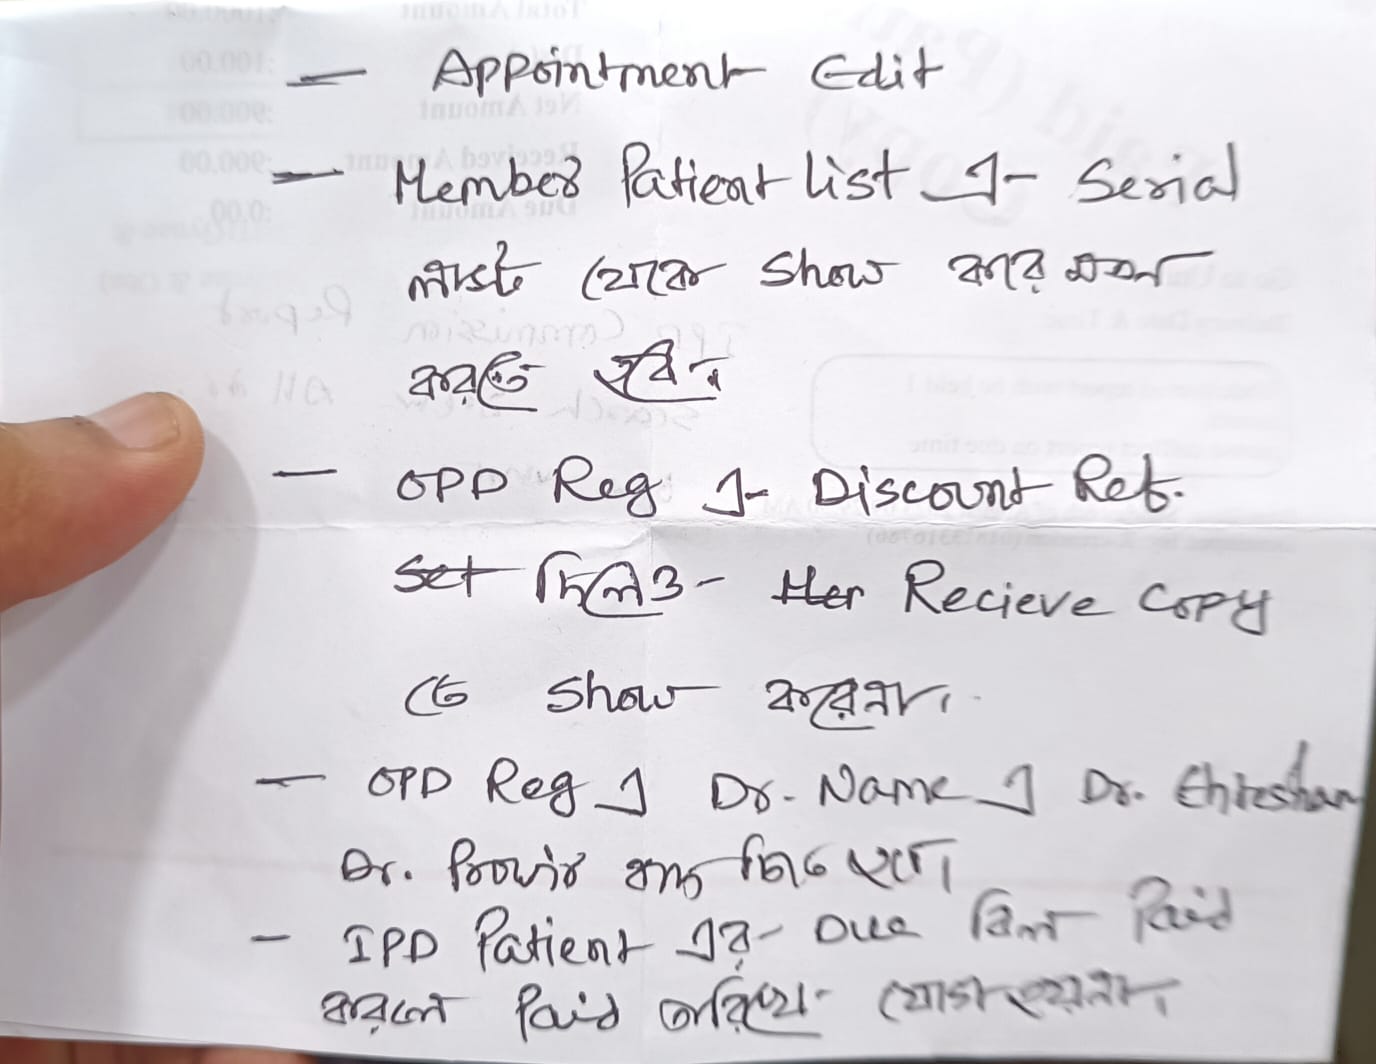 — Appointment Edit
— Member Patient list এ- Serial
লাস্ট থেকে Show করে
করতে হবে
— OPD Reg এ- Discount Ref.
Set দিলেও- Recieve Copy
তে Show করেনা।
— OPD Reg এ Dr. Name এ Dr. Ehteshan
Dr. Prowir বাদ দিতে হবে।
- IPD Patient এর Due বিল Paid
করলে Paid তারিখে যোগ হয়না।